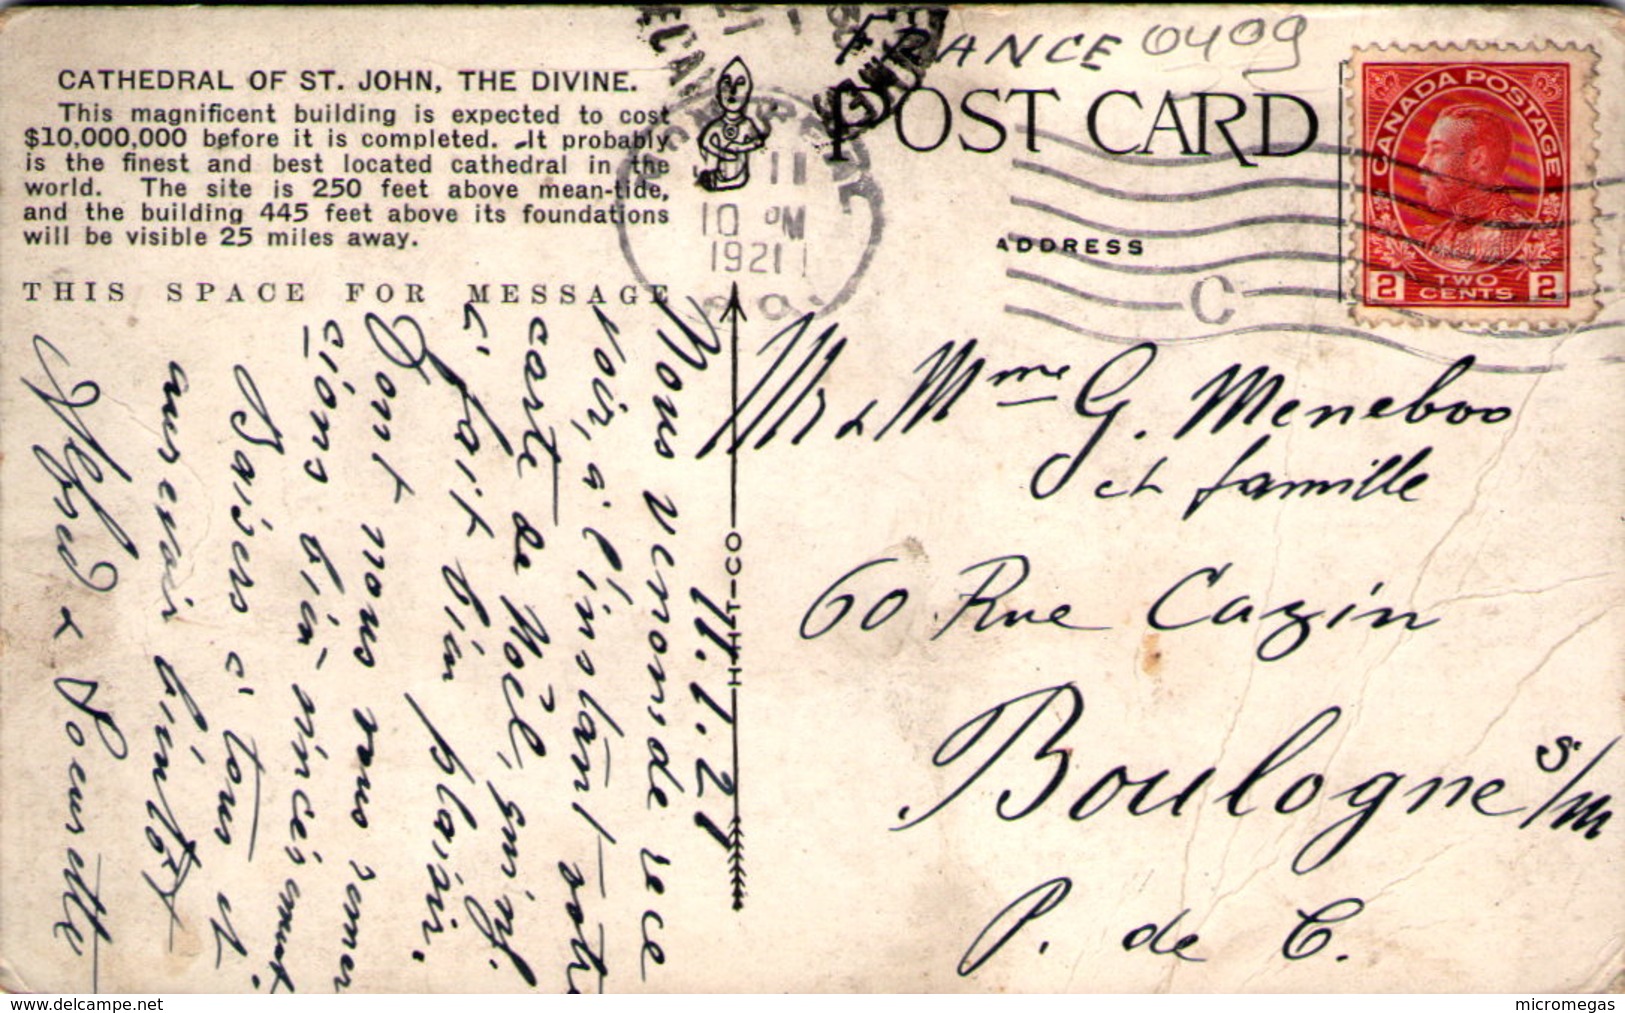 FRANCE 0409
CATHEDRAL OF ST. JOHN, THE DIVINE.
This magnificent building is expected to cost
$10,000,000 before it is completed. It probably
is the finest and best located cathedral in the
world. The site is 250 feet above mean-tide,
and the building 445 feet above its foundations
will be visible 25 miles away.
THIS SPACE FOR MESSAGE
POST CARD
ADDRESS
CANADA POSTAGE
2 TWO CENTS 2
MONTREAL
11
10 PM
1921
P.Q.
C
HART-CO
11.1.21
Nous venons de rece
voir, à l'instant votre
carte de Noël, qui n/.
a fait bien plaisir,
Dont nous vous remer
cions bien sincèrement
Baisers à tous et
au revoir bientôt
Alfred &
Mr & Mme G. Meneboo
et famille
60 Rue Cazin
Boulogne s/m
P. de C.
delcampe.net
micromegas